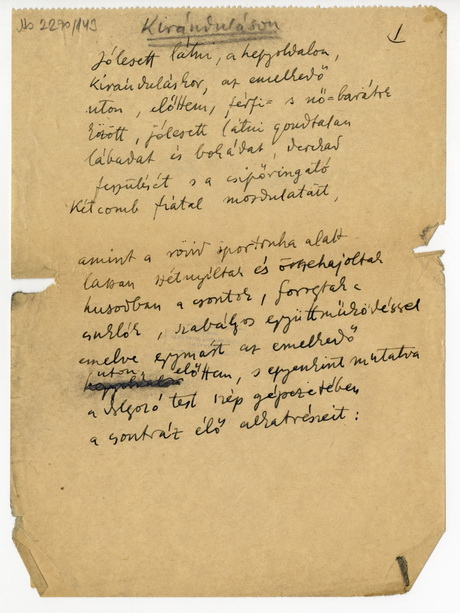 Ms 2270/143
Kiránduláson
1
Jólesett látni, a hegyoldalon,
kiránduláskor, az emelkedő
uton, előttem, férfi- s nő-barátok
között, jólesett látni gondtalan
lábadat és bokádat, derekad
feszülését s a csipőringató
két comb fiatal mozdulatait,
amint a rövid sportruha alatt
lassan szétnyiltak és összehajoltak
husodban a csontok, forogtak a
csuklók, szabályos együttműködéssel
emelve egymást az emelkedő
uton előttem, s egyenkint mutatva
hegyoldalon
a dolgozó test szép gépezetében
a csontváz élő alkatrészeit: